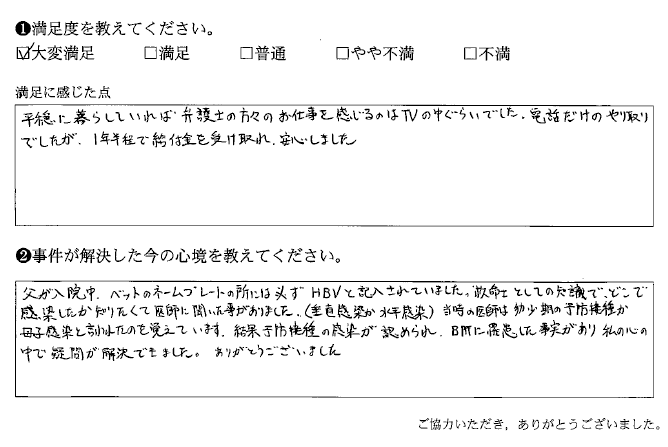 ❶満足度を教えてください。
☑大変満足 □満足 □普通 □やや不満 □不満
満足に感じた点
平穏に暮らしていれば弁護士の方々のお仕事を感じるのはTVの中ぐらいでした。電話だけのやり取り
でしたが、1年半程で給付金を受け取れ、安心しました
❷事件が解決した今の心境を教えてください。
父が入院中、ベットのネームプレートの所には必ずHBVと記入されていました。救命士としての知識で、どこで
感染したか知りたくて医師に聞いた事がありました。(垂直感染か水平感染)当時の医師は幼少期の予防接種か
母子感染と言われたのを覚えています。結果予防接種の感染が認められ、B肝に罹患した事実があり私の心の
中で疑問が解決できました。ありがとうございました
ご協力いただき，ありがとうございました。